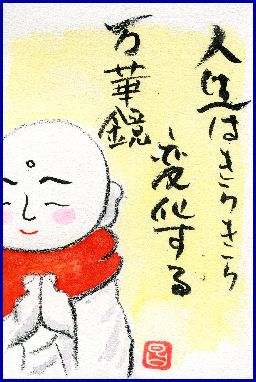 人生はきらきら
変化する
万華鏡